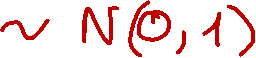 ~ N(0, 1)